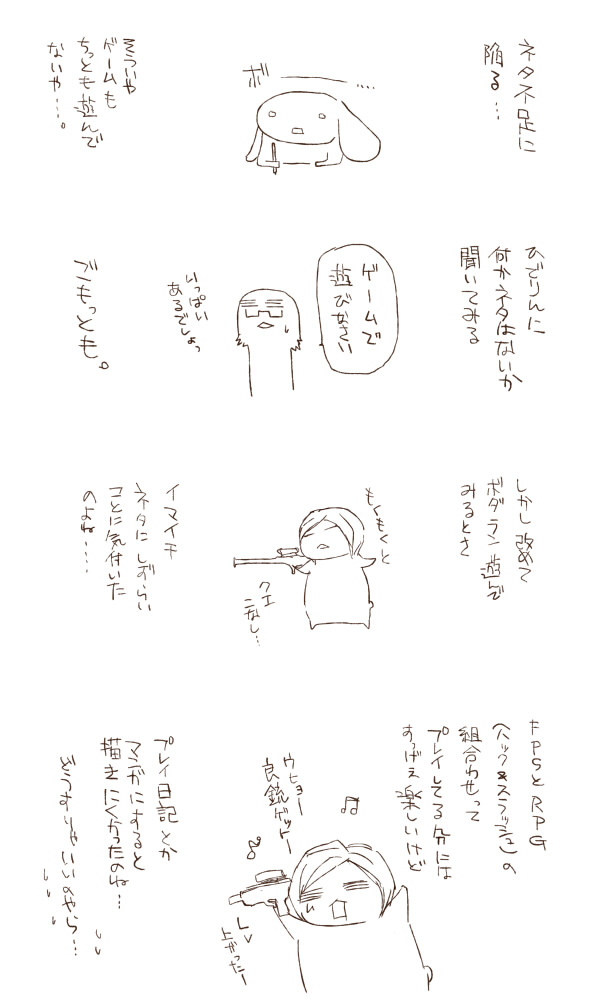 ネタ不足に
陥る…
ボ――…
そういや
ゲームも
ちっとも遊んで
ないや…。
ひでりんに
何かネタはないか
聞いてみる
ゲームで
遊びなさい
いっぱい
あるでしょっ
ごもっとも。
しかし改めて
ボダラン遊んで
みるとさ
もくもくと
クエ
こなし…
イマイチ
ネタにしずらい
ことに気付いた
のよね…
FPSとRPG
(ハック&スラッシュ)の
組合わせって
プレイしてる分には
すっげぇ楽しいけど
ウヒョー
良銃ゲッター
Lv
上がったー
プレイ日記とか
マンガにすると
描きにくかったのね…
どうすりゃいいのやら…